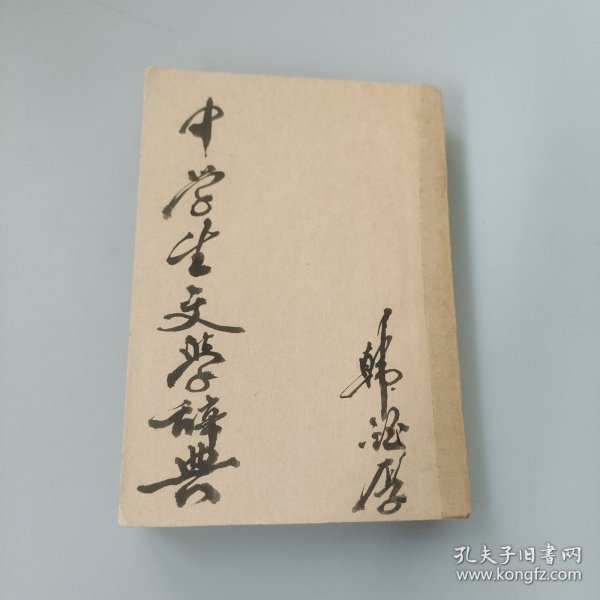 中学生文学辞典
韩
厚
孔夫子旧书网
www.kongfz.com